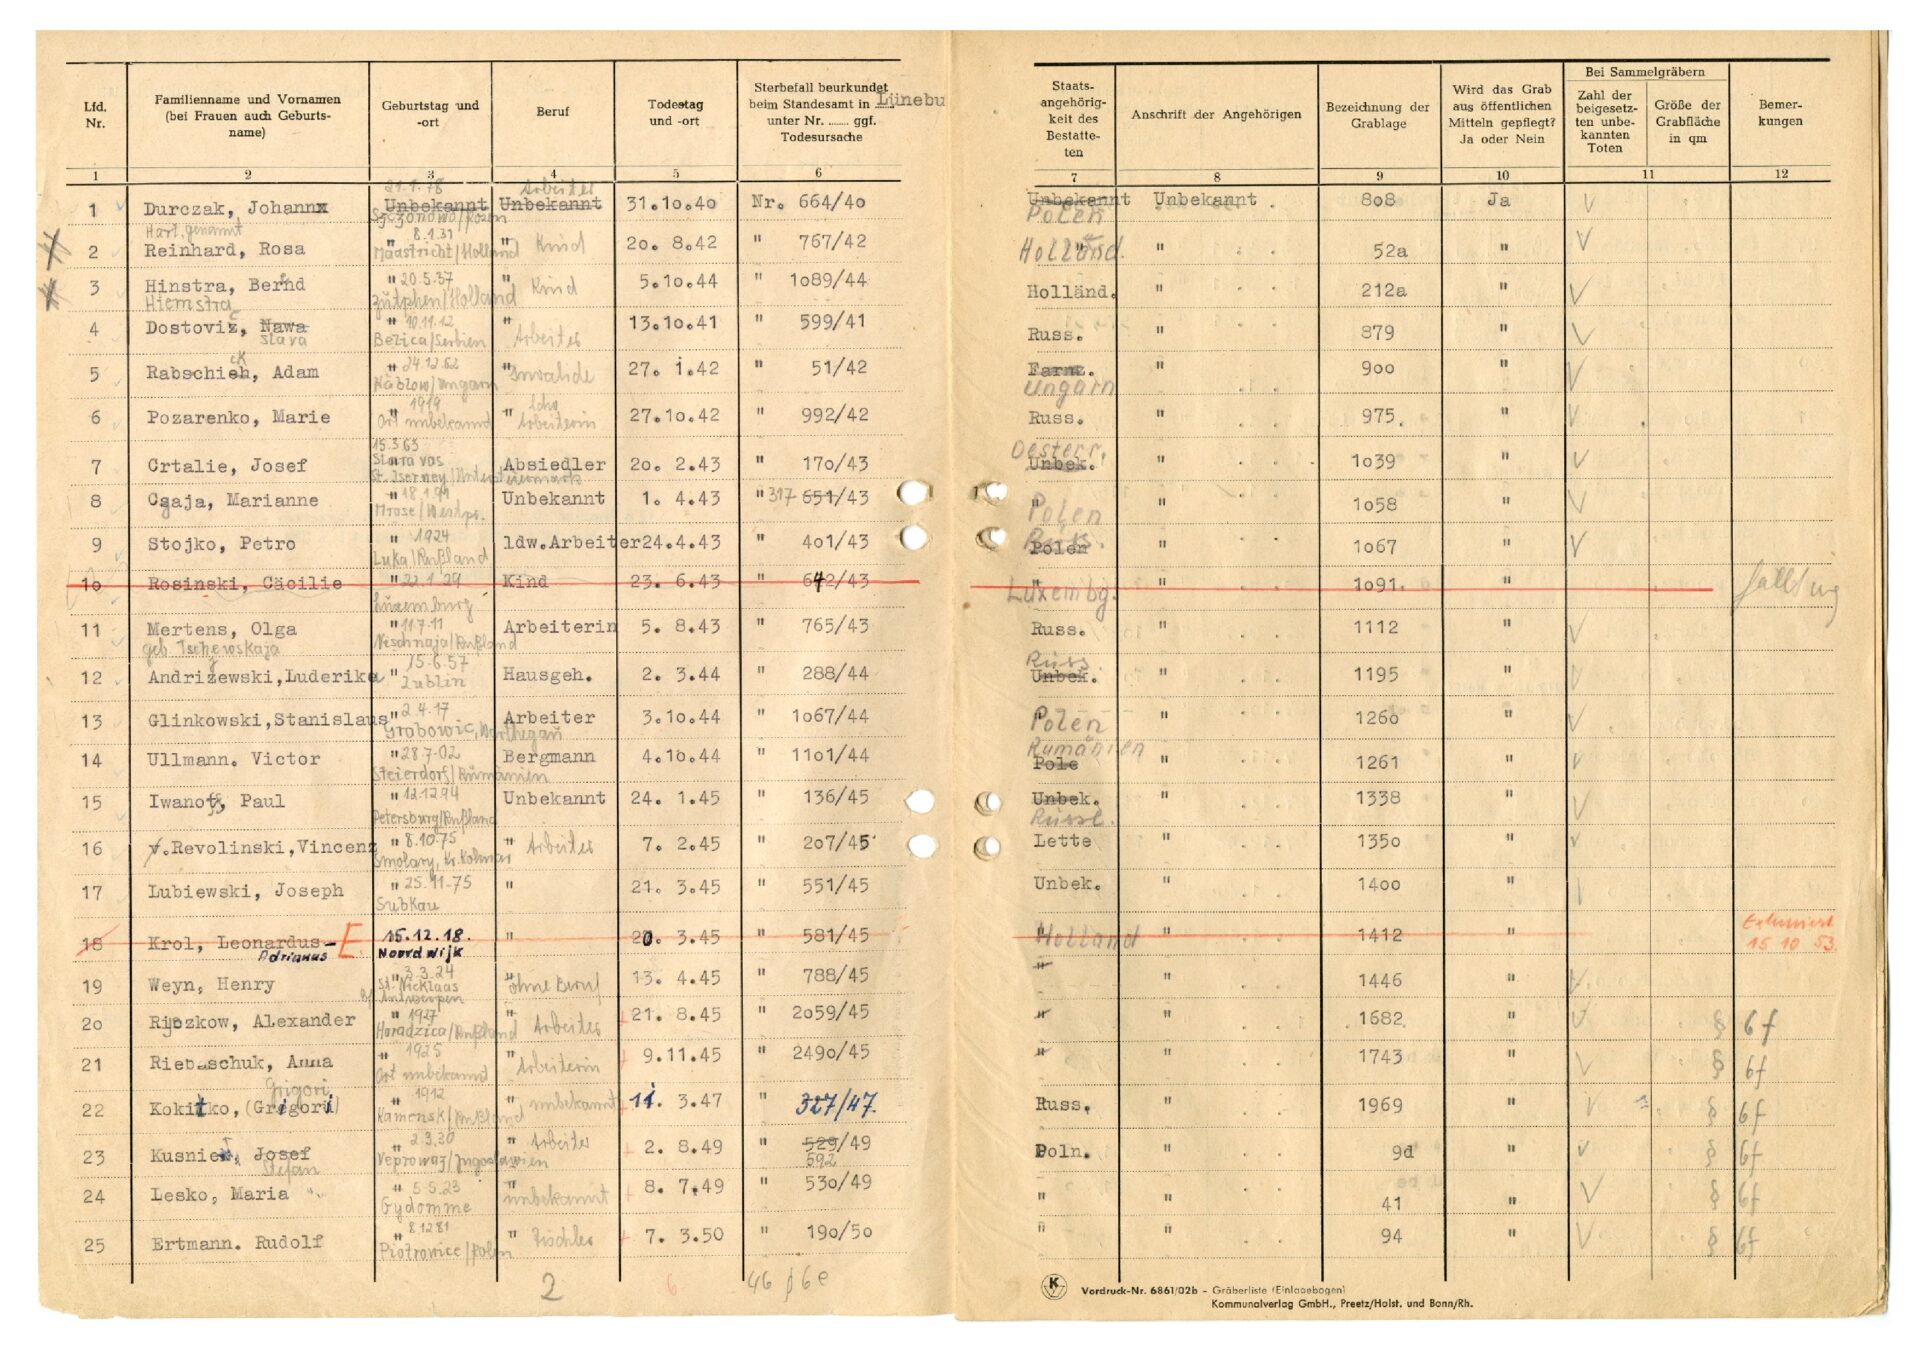 Lfd. Nr. | Familienname und Vornamen (bei Frauen auch Geburtsname) | Geburtstag und -ort | Beruf | Todestag und -ort | Sterbefall beurkundet beim Standesamt in Lünebu unter Nr. ...... ggf. Todesursache | Staatsangehörigkeit des Bestatteten | Anschrift der Angehörigen | Bezeichnung der Grablage | Wird das Grab aus öffentlichen Mitteln gepflegt? Ja oder Nein | Bei Sammelgräbern Zahl der beigesetzten unbekannten Toten | Größe der Grabfläche in qm | Bemerkungen
1 | 2 | 3 | 4 | 5 | 6 | 7 | 8 | 9 | 10 | 11 | 12
1 Durczak, Johann 21.1.78 Unbekannt Arbeiter Unbekannt 31.10.40 Nr. 664/40 Unbekannt Polen Unbekannt 808 Ja
Hart, genannt
2 Reinhard, Rosa " 8.1.31 Maastricht/Holland " Kind 20. 8.42 " 767/42 Holland. " 52a "
3 Hinstra, Bernd Hiemstra " 20.5.37 Zütphen/Holland " Kind 5.10.44 " 1089/44 Holländ. " 212a "
4 Dostoviz, Nawa Slava " 10.11.12 Bezica/Serbien " Arbeiter 13.10.41 " 599/41 Russ. " 879 "
5 Rabschieh, Adam ck " 24.12.62 /Ungarn " Invalide 27. 1.42 " 51/42 Ungarn " 900 "
6 Pozarenko, Marie " 1919 Ort unbekannt " Arbeiterin 27.10.42 " 992/42 Russ. " 975. "
7 Crtalie, Josef 15.3.63 Absiedler 20. 2.43 " 170/43 Oesterr. Unbek. " 1039 "
8 Csaja, Marianne " 18.1.91 Mrose/Westpr. Unbekannt 1. 4.43 " 317 651/43 " Polen " 1058 "
9 Stojko, Petro " 1924 Luka/Rußland ldw.Arbeiter 24.4.43 " 401/43 Russ. Polen " 1067 "
10 Rosinski, Cäcilie " 22.1.29 Luxemburg Kind 23. 6.43 " 642/43 " Luxembg. " 1091. "
11 Mertens, Olga geb. Tschewskaja " 11.7.11 Neschnaja/Rußland Arbeiterin 5. 8.43 " 765/43 Russ. " 1112 "
12 Andrižewski, Luderika " 15.6.57 Lublin Hausgeh. 2. 3.44 " 288/44 Russ. Unbek. " 1195 "
13 Glinkowski, Stanislaus " 2.4.17 Grabowic, Warthegau Arbeiter 3.10.44 " 1067/44 Polen " 1260 "
14 Ullmann. Victor " 28.7.02 Steierdorf/Rumänien Bergmann 4.10.44 " 1101/44 Rumänien Pole " 1261 "
15 Iwanoff, Paul " 12.12.94 Petersburg/Rußland Unbekannt 24. 1.45 " 136/45 Unbek. Russl. " 1338 "
16 v.Revolinski, Vincenz " 8.10.75 Smolary, Kr. Kolmar " Arbeiter 7. 2.45 " 207/45 Lette " 1350 "
17 Lubiewski, Joseph " 25.11.75 Subkau " 21. 3.45 " 551/45 Unbek. " 1400 "
18 Krol, Leonardus- Adrianus E 15.12.18. Noordwijk " 20. 3.45 " 581/45 " Holland " 1412 " Exhumiert 15.10 53.
19 Weyn, Henry " 3.3.24 St. Nicklaas Antwerpen " ohne Beruf 13. 4.45 " 788/45 " " 1446 "
20 Rjozkow, Alexander " 1927 Horadzica/Rußland " Arbeiter 21. 8.45 " 2059/45 " " 1682. " § 6f
21 Riebaschuk, Anna " 1925 Ort unbekannt " Arbeiterin 9.11.45 " 2490/45 " " 1743 " § 6f
22 Kokitko, (Grigori) Grigori " 1912 Kamensk/Rußland " unbekannt 11. 3.47 " 327/47. Russ. " 1969 " § 6f
23 Kusnier, Josef Stefan " 2.3.30 Veprowaz/Jugoslawien " Arbeiter 2. 8.49 " 529/49 592 Poln. " 9d " § 6f
24 Lesko, Maria " 5.5.23 Gydomme " unbekannt 8. 7.49 " 530/49 " " 41 " § 6f
25 Ertmann. Rudolf " 8.12 81 Piotrowice/Polen " Tischler 7. 3.50 " 190/50 " " 94 " § 6f
2 6 46 § 6e
K
Vordruck-Nr. 6861/02b - Gräberliste (Einlagebogen)
Kommunalverlag GmbH., Preetz/Holst. und Bonn/Rh.